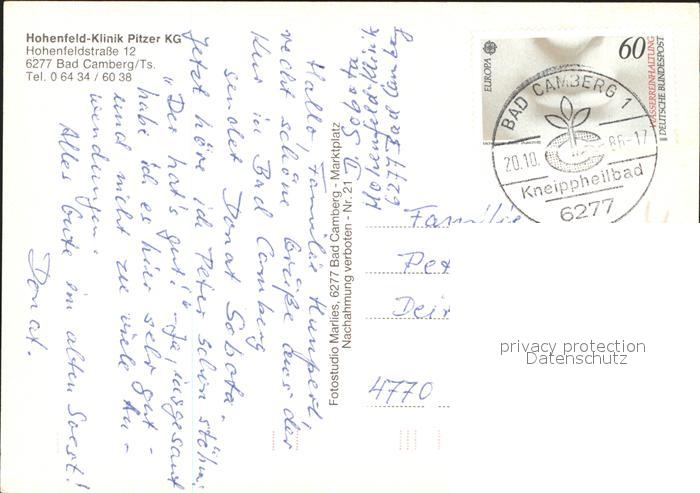 Hohenfeld-Klinik Pitzer KG
Hohenfeldstraße 12
6277 Bad Camberg/Ts.
Tel. 0 64 34 / 60 38
Hallo, Familie
recht schöne Grüße aus der
Kur in Bad Camberg
sendet Donat Sobota.
Jetzt höre ich Peter schon stöhn:
"Der hat's gut!" - Ja, insgesamt
habe ich es hier sehr gut -
und nicht zu viele An-
wendungen.
Alles Gute im alten Soest!
Donat.
Fotostudio Marlies, 6277 Bad Camberg - Marktplatz
Nachahmung verboten - Nr. 21
D. Sobota
Hohenfeld-Klinik
6277 Bad Camberg
EUROPA
60
WASSERREINHALTUNG
DEUTSCHE BUNDESPOST
BAD CAMBERG 1
20.10. 86-17
Kneippheilbad
6277
Familie
Pet
Dei
4770
privacy protection
Datenschutz